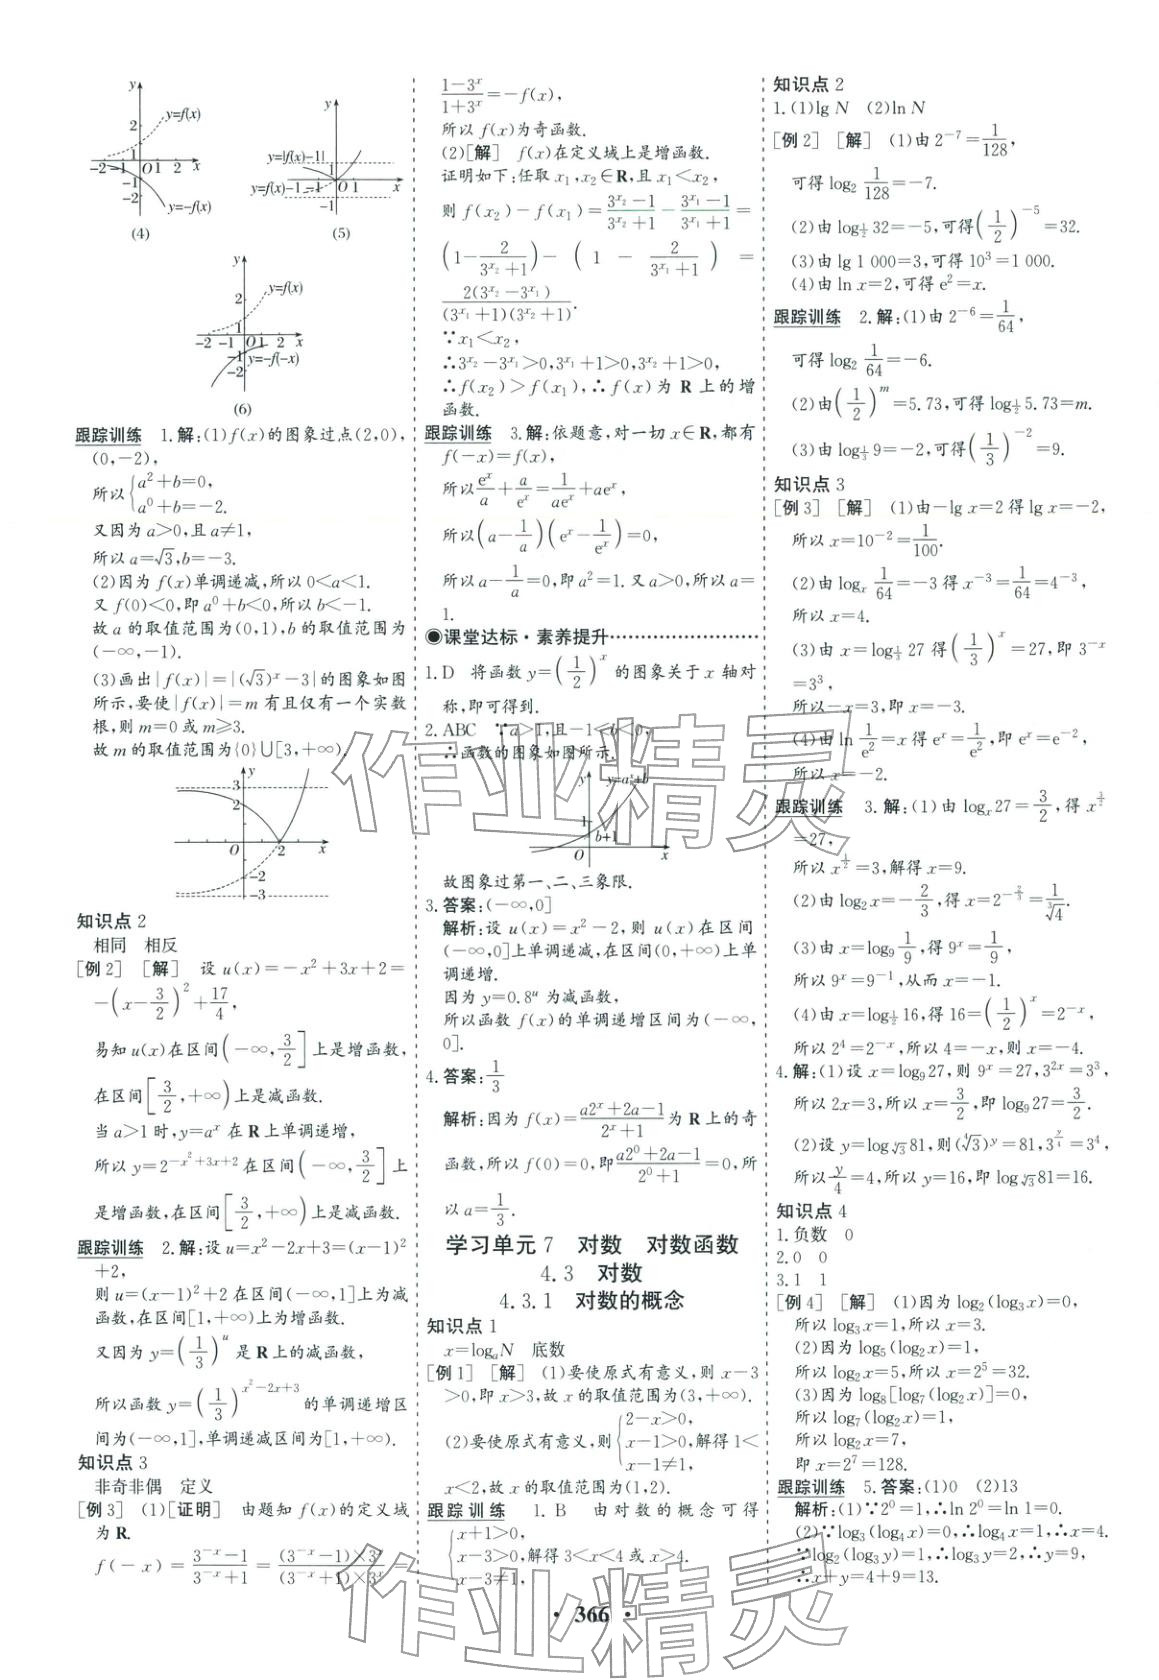 y
y=f(x)
2
1
-2 -1 O 1 2 x
-1
-2
y=-f(x)
(4)
y
y=|f(x)-1|
1
y=f(x)-1 -1 O 1 x
-1
(5)
y
y=f(x)
2
1
-2 -1 O 1 2 x
-1
y=-f(-x)
-2
(6)
跟踪训练 1.解:(1)f(x)的图象过点(2,0),
(0,-2),
所以{a²+b=0,
a⁰+b=-2.
又因为a>0,且a≠1,
所以a=√3,b=-3.
(2)因为 f(x)单调递减,所以0<a<1.
又 f(0)<0,即a⁰+b<0,所以b<-1.
故a的取值范围为(0,1),b的取值范围为
(-∞,-1).
(3)画出|f(x)|=|(√3)ˣ-3|的图象如图
所示,要使|f(x)|=m有且仅有一个实数
根,则m=0或m≥3.
故m的取值范围为{0}∪[3,+∞).
y
3
2
O 2 x
-2
-3
知识点2
相同 相反
[例2] [解] 设u(x)=-x²+3x+2=
-(x-3/2)²+17/4,
易知u(x)在区间(-∞,3/2]上是增函数,
在区间[3/2,+∞)上是减函数.
当a>1时,y=aˣ在R上单调递增,
所以y=2^(-x²+3x+2)在区间(-∞,3/2]上
是增函数,在区间[3/2,+∞)上是减函数.
跟踪训练 2.解:设u=x²-2x+3=(x-1)²
+2,
则u=(x-1)²+2在区间(-∞,1]上为减
函数,在区间[1,+∞)上为增函数.
又因为y=(1/3)ᵘ是R上的减函数,
所以函数y=(1/3)^(x²-2x+3)的单调递增区
间为(-∞,1],单调递减区间为[1,+∞).
知识点3
非奇非偶 定义
[例3] (1)[证明] 由题知f(x)的定义域
为R.
f(-x)=(3⁻ˣ-1)/(3⁻ˣ+1)=((3⁻ˣ-1)×3ˣ)/((3⁻ˣ+1)×3ˣ)=
(1-3ˣ)/(1+3ˣ)=-f(x),
所以f(x)为奇函数.
(2)[解] f(x)在定义域上是增函数.
证明如下:任取x₁,x₂∈R,且x₁<x₂,
则f(x₂)-f(x₁)=(3^x₂-1)/(3^x₂+1)-(3^x₁-1)/(3^x₁+1)=
(1-2/(3^x₂+1))-(1-2/(3^x₁+1))=
2(3^x₂-3^x₁)/((3^x₁+1)(3^x₂+1)).
∵x₁<x₂,
∴3^x₂-3^x₁>0,3^x₁+1>0,3^x₂+1>0,
∴f(x₂)>f(x₁),∴f(x)为R上的增
函数.
跟踪训练 3.解:依题意,对一切x∈R,都有
f(-x)=f(x),
所以eˣ/a+a/eˣ=1/(aeˣ)+aeˣ,
所以(a-1/a)(eˣ-1/eˣ)=0,
所以a-1/a=0,即a²=1.又a>0,所以a=
1.
◉课堂达标·素养提升
1.D 将函数y=(1/2)ˣ的图象关于x轴对
称,即可得到.
2.ABC ∵a>1,且-1<b<0,
∴函数的图象如图所示.
y
y=aˣ+b
1
b+1
O x
故图象过第一、二、三象限.
3.答案:(-∞,0]
解析:设u(x)=x²-2,则u(x)在区间
(-∞,0]上单调递减,在区间(0,+∞)上单
调递增.
因为y=0.8ᵘ为减函数,
所以函数f(x)的单调递增区间为(-∞,
0].
4.答案:1/3
解析:因为f(x)=(a2ˣ+2a-1)/(2ˣ+1)为R上的奇
函数,所以f(0)=0,即(a2⁰+2a-1)/(2⁰+1)=0,所
以a=1/3.
学习单元7 对数 对数函数
4.3 对数
4.3.1 对数的概念
知识点1
x=logₐN 底数
[例1] [解] (1)要使原式有意义,则x-3
>0,即x>3,故x的取值范围为(3,+∞).
(2)要使原式有意义,则{2-x>0,
x-1>0,解得1<
x-1≠1,
x<2,故x的取值范围为(1,2).
跟踪训练 1.B 由对数的概念可得
{x+1>0,
x-3>0,解得3<x<4或x>4.
x-3≠1,
知识点2
1.(1)lg N (2)ln N
[例2] [解] (1)由2⁻⁷=1/128,
可得log₂ 1/128=-7.
(2)由log_(1/2)32=-5,可得(1/2)⁻⁵=32.
(3)由lg 1 000=3,可得10³=1 000.
(4)由ln x=2,可得e²=x.
跟踪训练 2.解:(1)由2⁻⁶=1/64,
可得log₂ 1/64=-6.
(2)由(1/2)ᵐ=5.73,可得log_(1/2)5.73=m.
(3)由log_(1/3)9=-2,可得(1/3)⁻²=9.
知识点3
[例3] [解] (1)由-lg x=2得lg x=-2,
所以x=10⁻²=1/100.
(2)由logₓ 1/64=-3得x⁻³=1/64=4⁻³,
所以x=4.
(3)由x=log_(1/3)27得(1/3)ˣ=27,即3⁻ˣ
=3³,
所以-x=3,即x=-3.
(4)由ln 1/e²=x得eˣ=1/e²,即eˣ=e⁻²,
所以x=-2.
跟踪训练 3.解:(1)由logₓ27=3/2,得x^(3/2)
=27,
所以x^(1/2)=3,解得x=9.
(2)由log₂x=-2/3,得x=2^(-2/3)=1/∛4.
(3)由x=log₉ 1/9,得9ˣ=1/9,
所以9ˣ=9⁻¹,从而x=-1.
(4)由x=log_(1/2)16,得16=(1/2)ˣ=2⁻ˣ,
所以2⁴=2⁻ˣ,所以4=-x,则x=-4.
4.解:(1)设x=log₉27,则9ˣ=27,3²ˣ=3³,
所以2x=3,所以x=3/2,即log₉27=3/2.
(2)设y=log_(∜3)81,则(∜3)ʸ=81,3^(y/4)=3⁴,
所以y/4=4,所以y=16,即log_(∜3)81=16.
知识点4
1.负数 0
2.0 0
3.1 1
[例4] [解] (1)因为log₂(log₃x)=0,
所以log₃x=1,所以x=3.
(2)因为log₅(log₂x)=1,
所以log₂x=5,所以x=2⁵=32.
(3)因为log₈[log₇(log₂x)]=0,
所以log₇(log₂x)=1,
所以log₂x=7,
即x=2⁷=128.
跟踪训练 5.答案:(1)0 (2)13
解析:(1)∵2⁰=1,∴ln 2⁰=ln 1=0.
(2)∵log₃(log₄x)=0,∴log₄x=1,∴x=4.
∵log₂(log₃y)=1,∴log₃y=2,∴y=9,
∴x+y=4+9=13.
· 366 ·
作业精灵
作业精灵